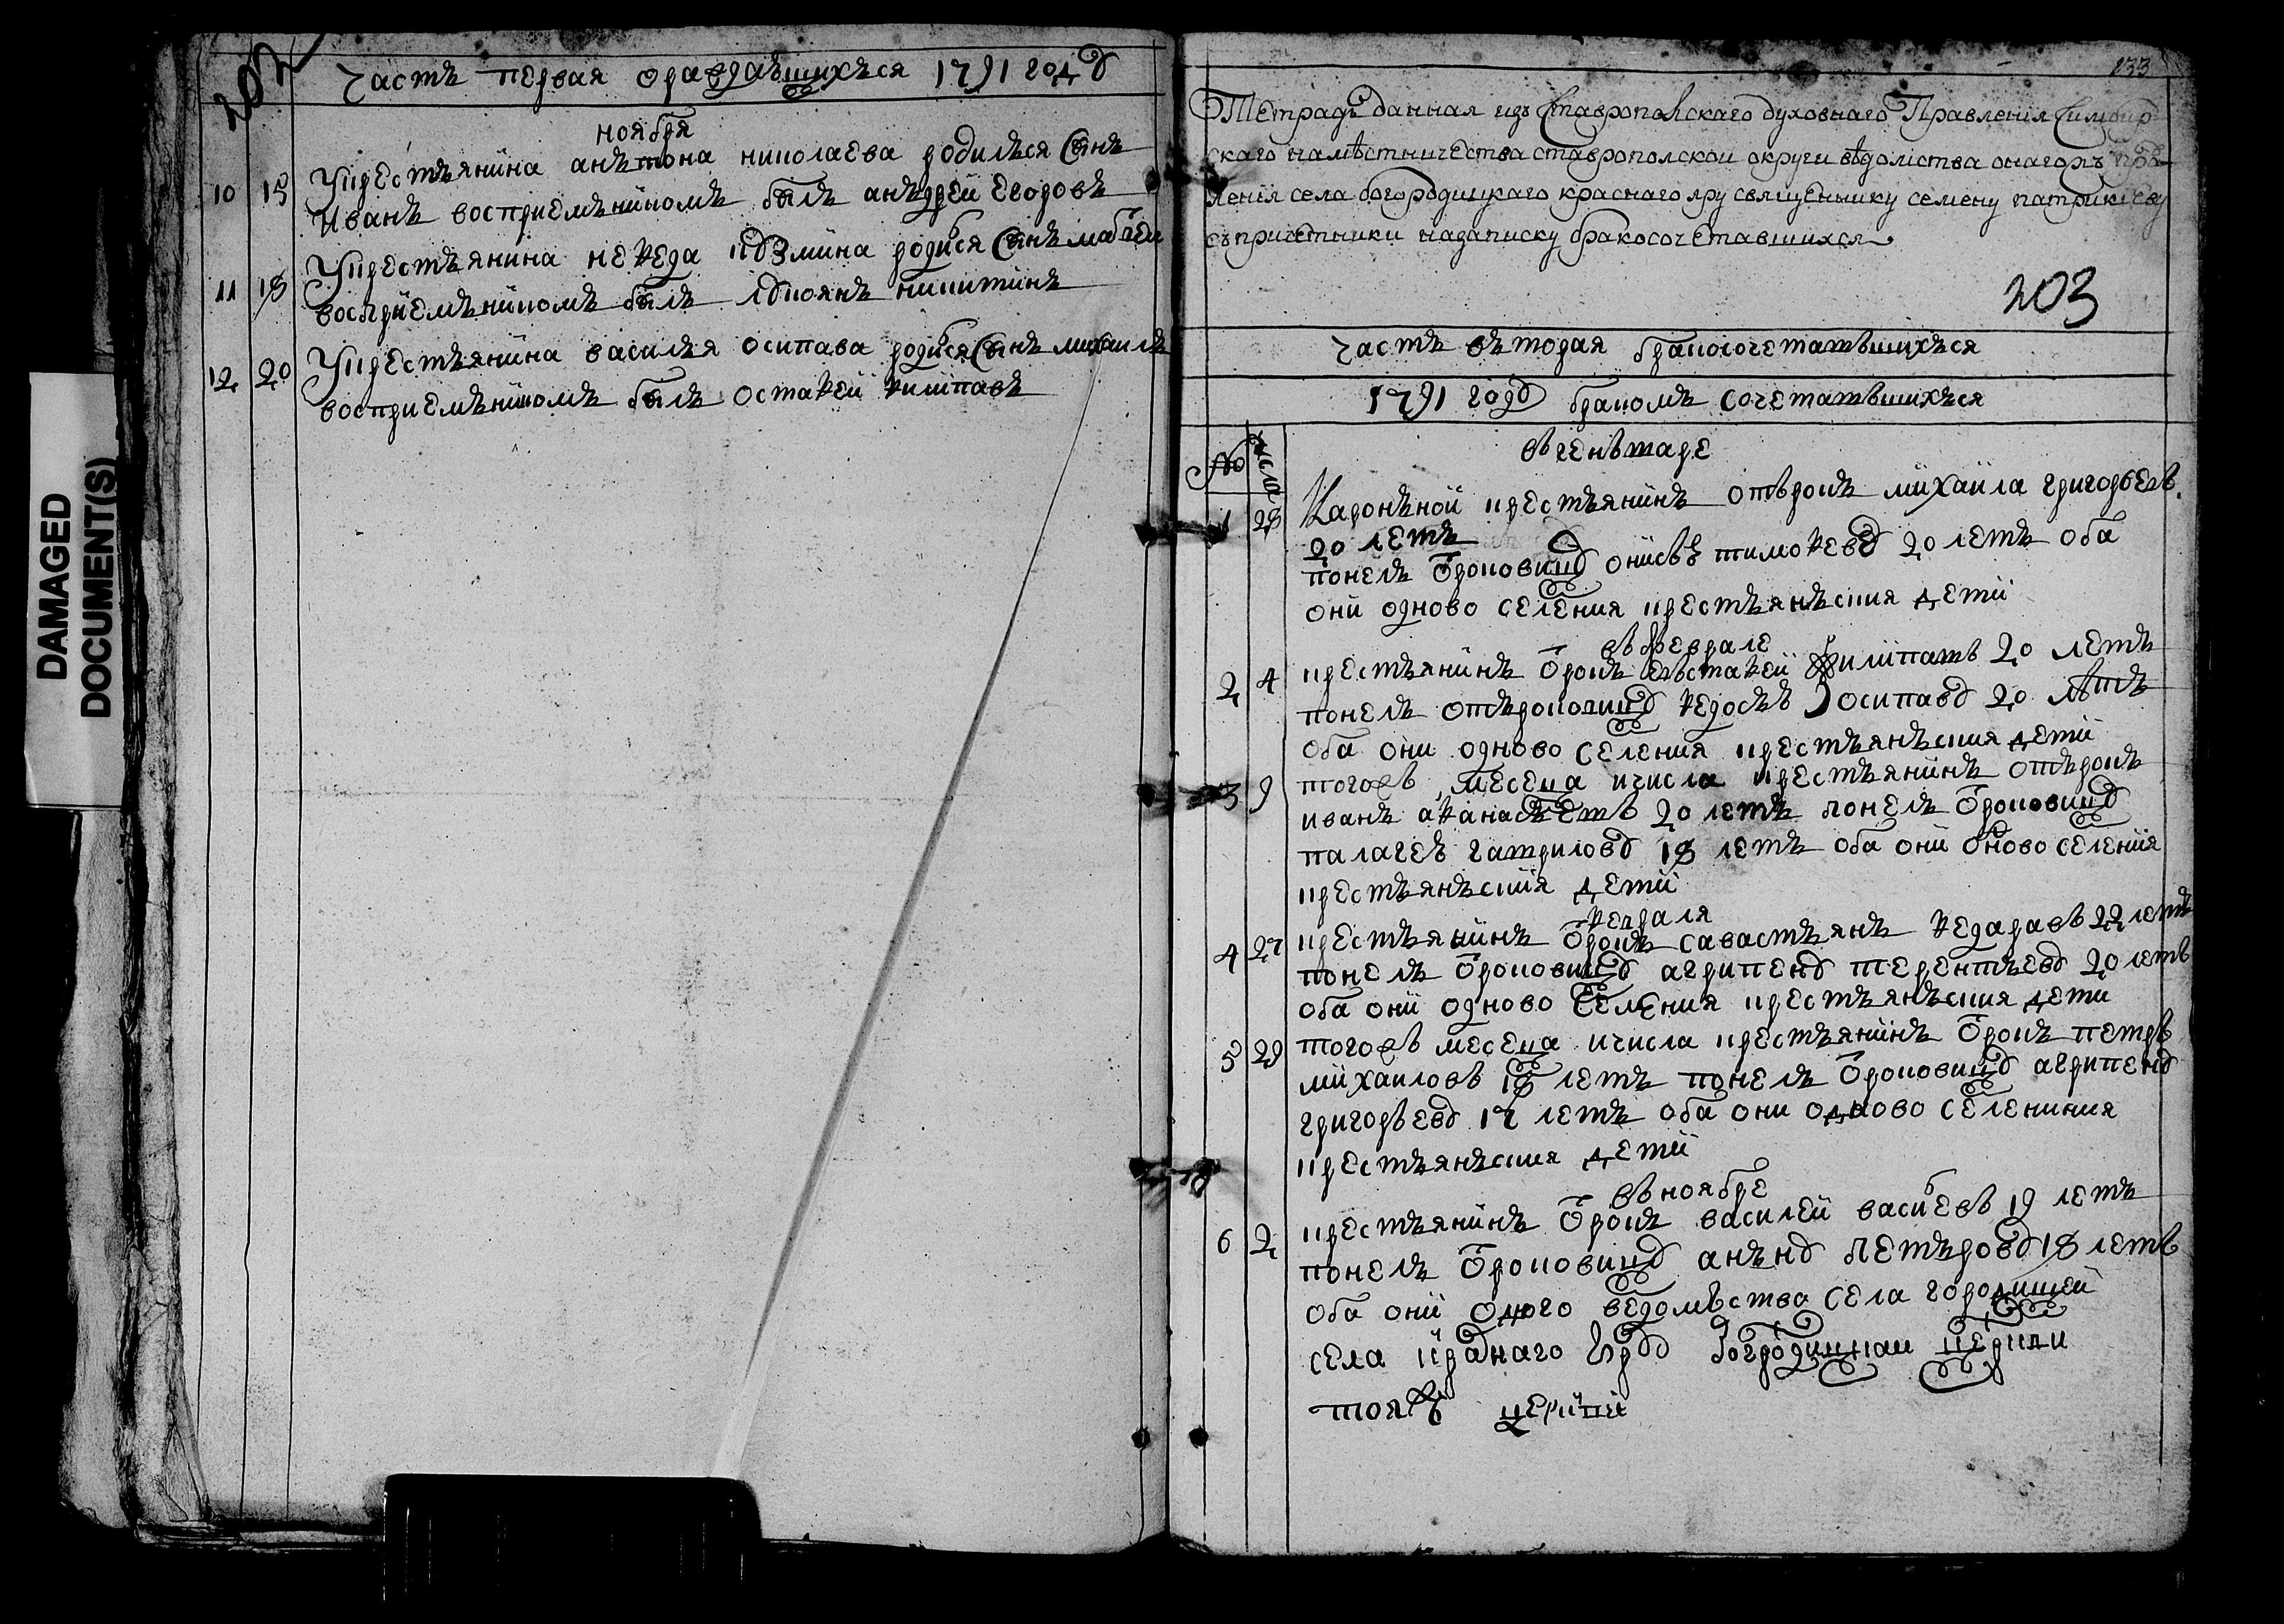 202
часть первая оравдавшихъся 1791 годѹ
ноября
10 15 Укрестьянина анътона николаева родилъся Сынъ
Иванъ восприемъникомъ былъ анъдрей егоровъ
11 18 Укрестьянина не ѳеда кузмина родися Сынъ матвеи
восприемъникомъ былъ лукоянъ никитинъ
12 20 Укрестьянина василья осипава родися Сынъ михаилъ
восприемъникомъ былъ остаѳеи ѳилипавъ
DAMAGED
DOCUMENT(S)
233
Тетрадь данная изъ Ставропольскаго духовнаго Правленія Симбир
скаго намѣстничества ставрополской округи вѣдомства онагожъ прав
ленія села богородицкаго краснаго яру священнику семену патрикіеву
съпричетники назаписку бракосочетавшихся
203
часть въторая бракосочетатьшихъся
1791 годѹ бракомъ сочетатьшихъся
№ числа
въгенътаре
1 28 Каронъной крестьянинъ отърокъ михаила григорьевъ
20 летъ
понелъ ѿроковицѹ онисьѣ тимоѳевѹ 20 летъ оба
они одново селения крестьянъския дети
въѳеврале
2 4 крестьянинъ ѿрокъ евъстаѳей ѳилипатъ 20 летъ
понелъ отъроковицѹ ѳедосьѣ осипавѹ 20 лѣтъ
оба они одново селения крестьянъския дети
3 9 тогожъ месеца ичисла крестьянинъ отърокъ
иванъ аѳанасьетъ 20 летъ понелъ ѿроковицѹ
палагеѣ гатриловѹ 18 летъ оба они оново селения
крестьянъския дети
ѳевраля
4 27 крестьянинъ ѿрокъ савастьянъ ѳедаравъ 22 летъ
понелъ ѿроковицѹ агрипенѹ терентьевѹ 20 летъ
оба они одново селения крестьянъския дети
5 29 тогожъ месеца ичисла крестьянинъ ѿрокъ петръ
михаиловъ 18 летъ понелъ ѿроковицѹ агрипенѹ
григорьевѹ 17 летъ оба они одново селениния
крестьянъския дети
въноябре
6 2 крестьянинъ ѿрокъ василей васиевъ 19 летъ
понелъ ѿроковицѹ анънѹ петъровѹ 18 летъ
оба они одного ведомъства села городищей
села краснаго богородицкаи церкви
тояжъ церкви